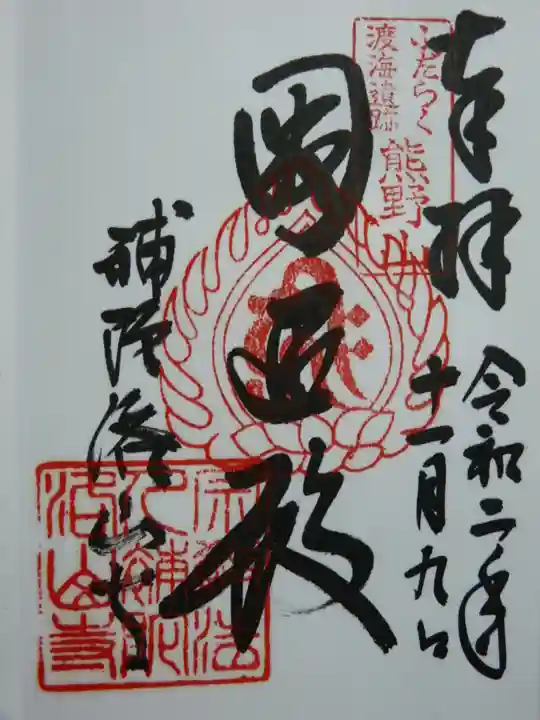 奉拝
令和二年
十一月九日
ふだらく
渡海遺跡
熊野
圓通殿
補陀洛山寺
補陀
洛山寺